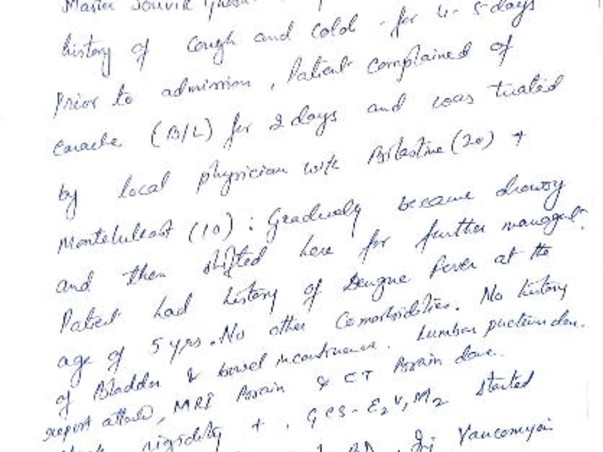 Master Souvik
history of cough and cold - for 4-5 days
prior to admission, Patient complained of
earache (B/L) for 2 days and was treated
by local physician with Bilastine (20) +
Montelukast (10) : Gradually became drowsy
and then shifted here for further managet.
Patient had history of Dengue fever at the
age of 5 yrs. No other Comorbidities. No history
of Bladder & bowel incontinence. Lumbar puncture done.
report attached, MRI Brain & CT Brain done.
rigidity +, GCS - E2V1M2 started
BD, Inj Vancomycin